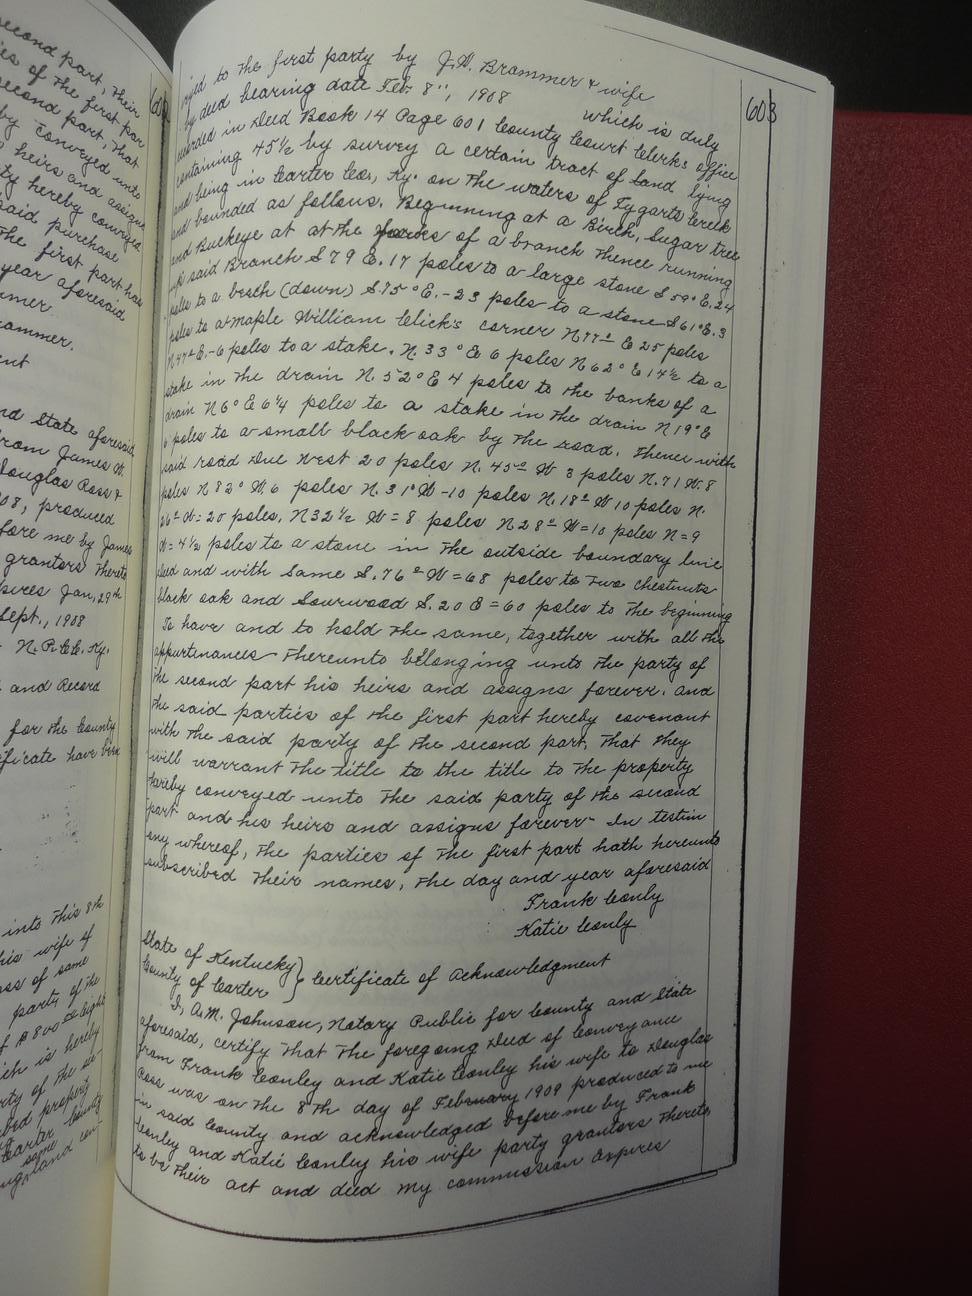 second part, their
ies of the first par
second part, that
by conveyed unto
heirs and assigns
ty hereby conveyed
said purchase
the first part has
year aforesaid
mmer
rammer.
ent
nd State aforesaid
from James W.
Douglas Ross &
08, produced
fore me by James
grantors thereto
pires Jan, 29th
Sept., 1908
N.P.C.C. Ky.
and Record
for the County
ificate have been
into this 8th
his wife of
ss of same
party of the
f $800.00 Eight
ich is hereby
rty of the sec-
bed property
Carter County
same
ng land con-
603
veyed to the first party by J.W. Brammer & wife
by deed bearing date Feb. 8", 1908 which is duly
recorded in Deed Book 14 Page 601 County Court Clerks office
containing 45½ by survey a certain tract of Land lying
and being in Carter Co., Ky. on the waters of Tygarts Creek
and bounded as follows. Beginning at a Birch, Sugar tree
and Buckeye at at the forks of a branch thence running
up said Branch S 79 E. 17 poles to a large stone S 59° E. 24
poles to a beach (down) S. 75° E. - 23 poles to a stone S 61° E. 3
poles to a maple William Click's corner N 77° E 25 poles
N 47° E. - 6 poles to a stake. N. 33° E 6 poles N 62° E 14½ to a
stake in the drain N. 52° E 4 poles to the banks of a
drain N 6° E 6¼ poles to a stake in the drain N 19° E
6 poles to a small black oak by the road. Thence with
said road Due West 20 poles N. 45° W 3 poles N. 71 W. 8
poles N 82° W. 6 poles N. 31° W - 10 poles N. 18° W 10 poles N.
26° W = 20 poles, N 32½ W = 8 poles N 28° W = 10 poles N = 9
W = 4½ poles to a stone in the outside boundary line
deed and with same S. 76° W = 68 poles to two chestnuts
black oak and Sourwood S. 20 E = 60 poles to the beginning
To have and to hold the same, together with all the
appurtinances thereunto belonging unto the party of
the second part his heirs and assigns forever. And
the said parties of the first part hereby covenant
with the said party of the second part, that they
will warrant the title to the title to the property
hereby conveyed unto the said party of the second
part and his heirs and assigns forever - In testim
ony whereof, the parties of the first part hath hereunto
subscribed their names, the day and year aforesaid
Frank Conly
Katie Conly
State of Kentucky
County of Carter } Certificate of Acknowledgment
I, A.M. Johnson, Notary Public for County and State
aforesaid, certify that the foregoing Deed of Conveyance
from Frank Conley and Katie Conley his wife to Douglas
Ross was on the 8th day of February 1909 produced to me
in said County and acknowledged before me by Frank
Conley and Katie Conley his wife party grantors thereto
to be their act and deed My commission Expires